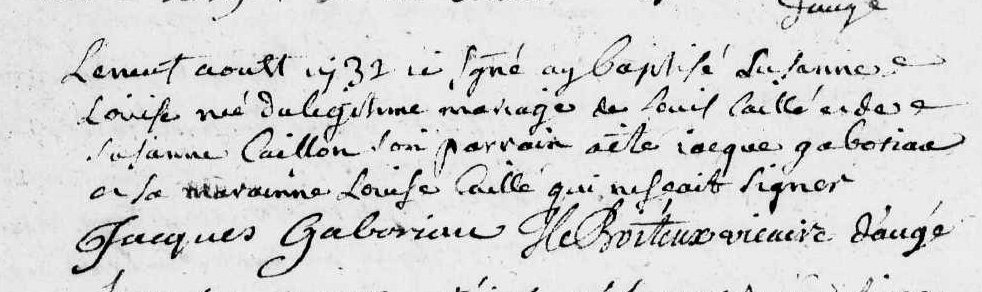 d'augé
Le neuf aoust 1732 ie sgné ay baptisé Susanne
Louise née du legitime mariage de Louis Caillé et de
Susanne Caillon son parrain a été iacque gaboriau
et sa marainne Louise Caillé qui ne scait signer
Jacques Gaboriau Boiteux vicaire d'augé